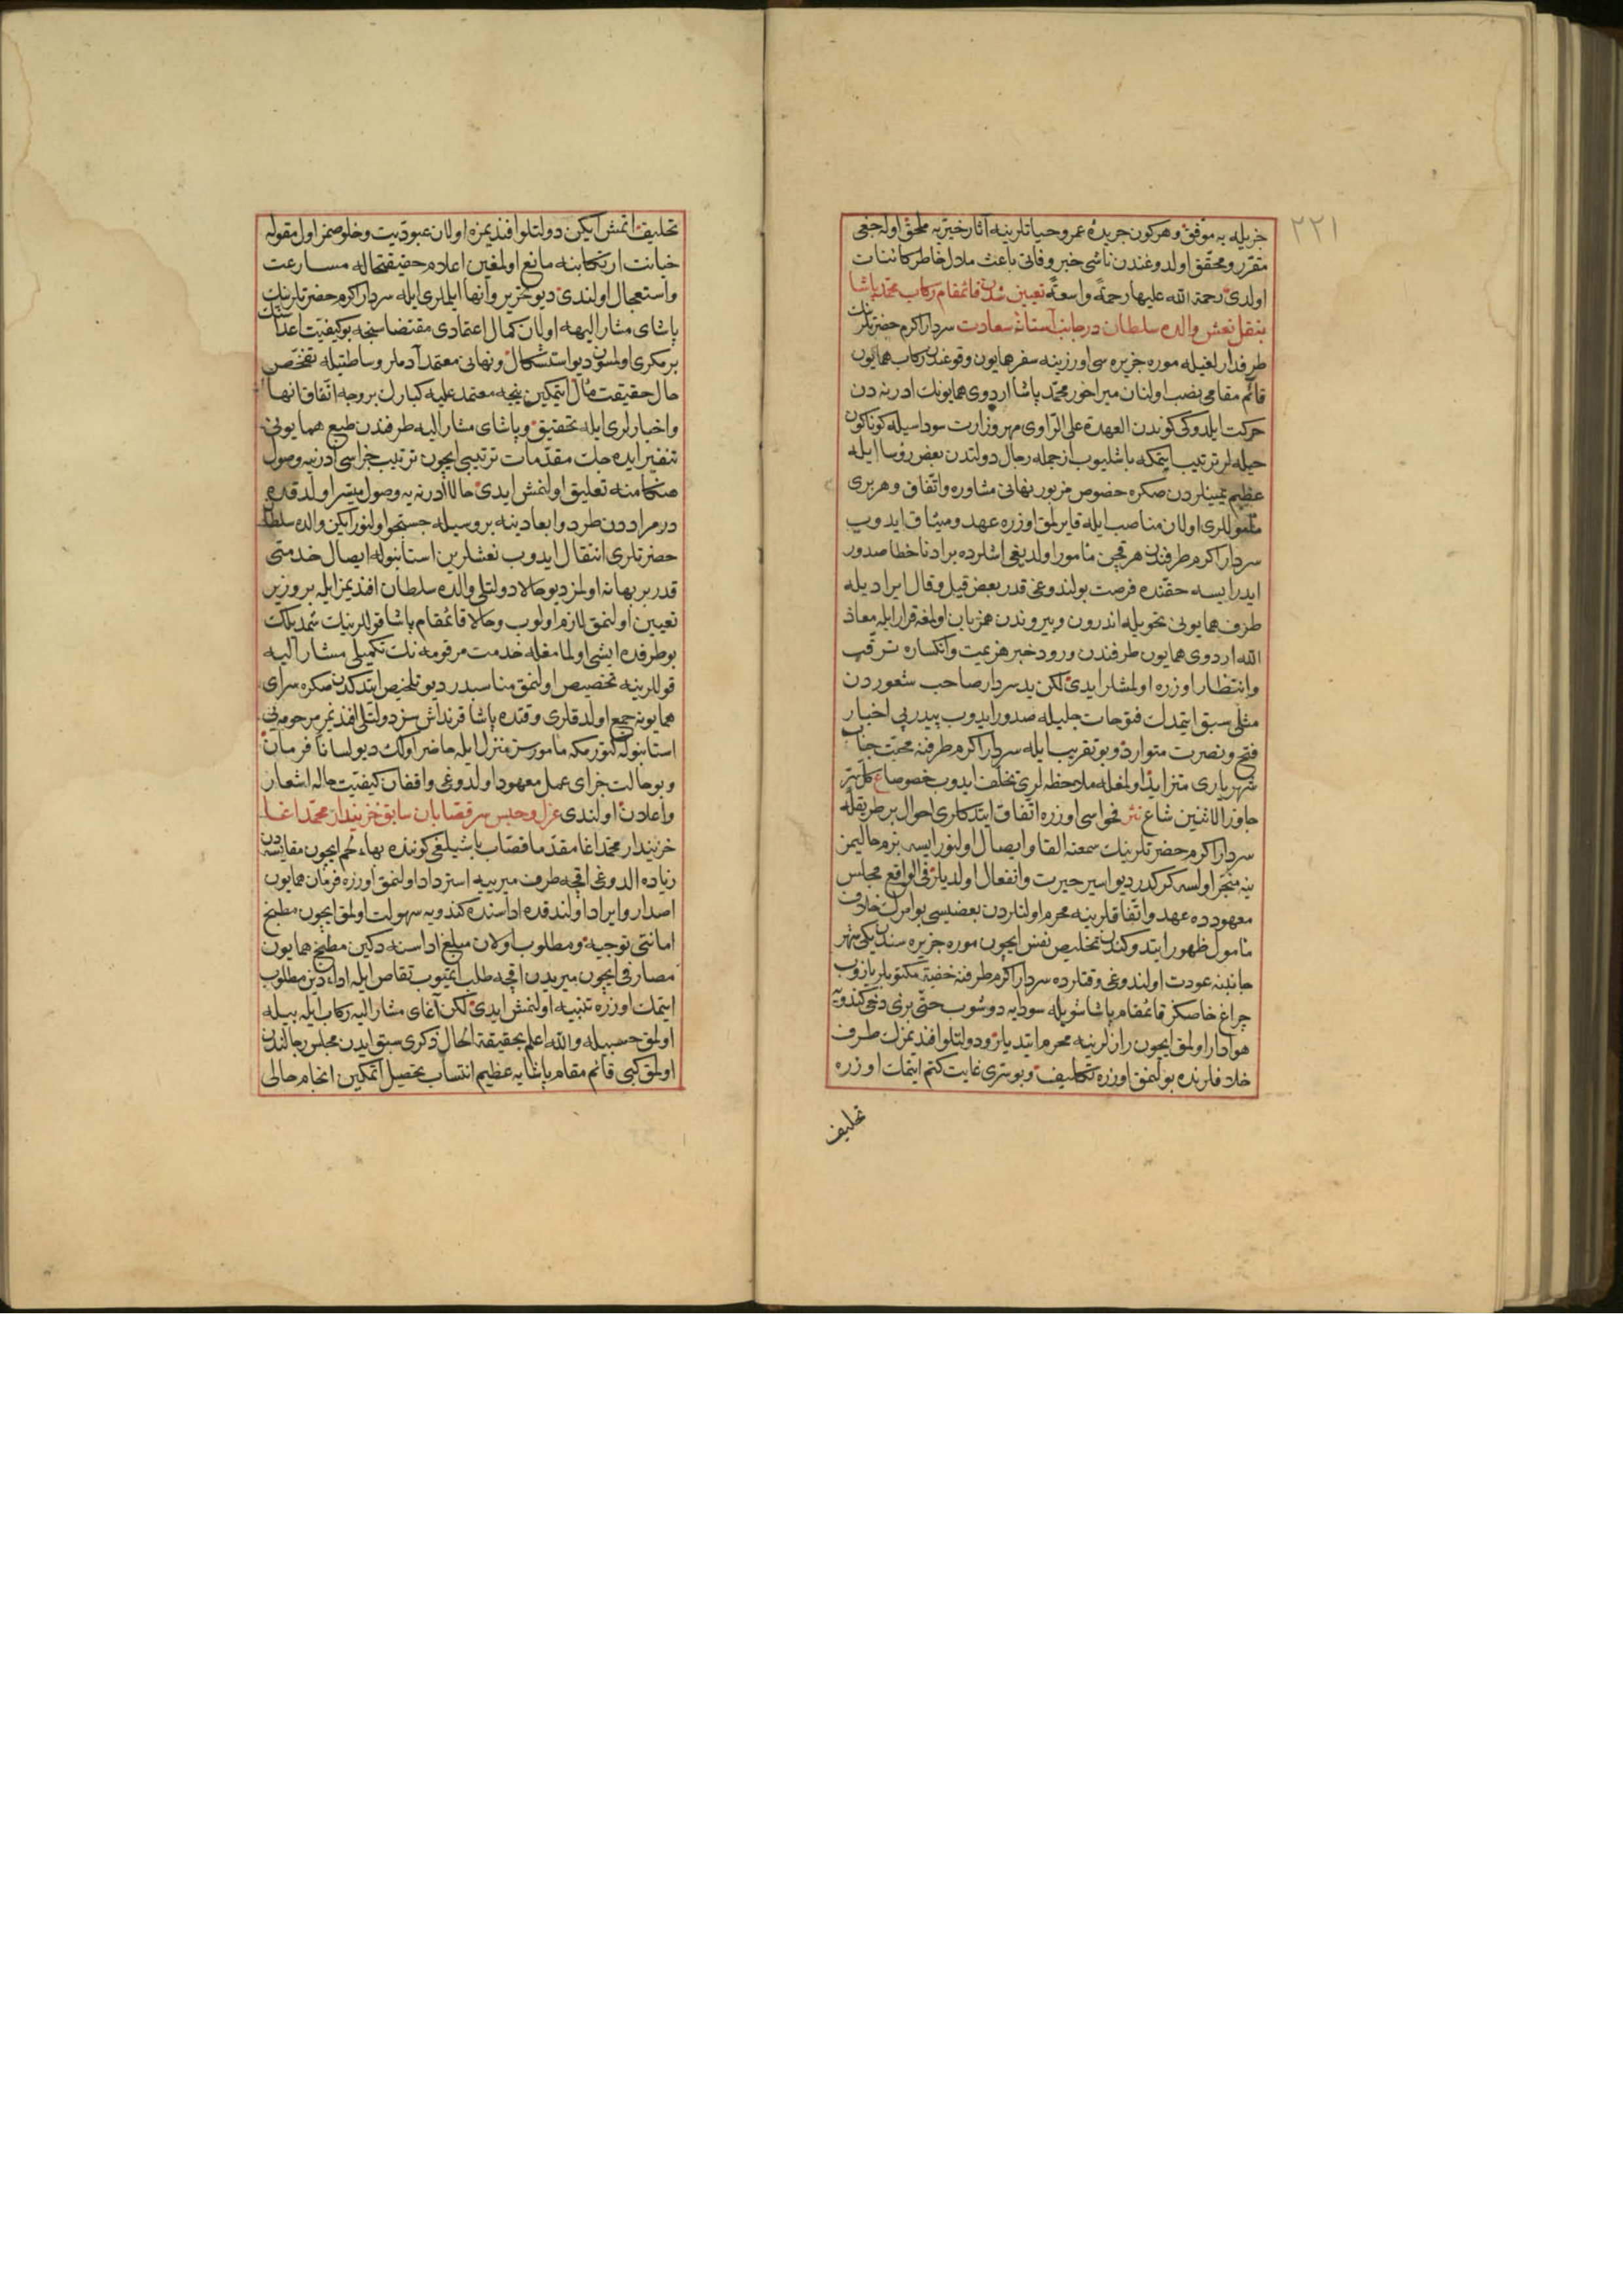 ٢٢١
جزيله يه موفق و هركون جريدهٔ عمر و حياتلرينه آثار خيريه ملحق اوله جغى
مقرر و محقق اولدوغندن ناشى خبر وفاتى باعث ملال خاطر كائنات
اولدى رحمة الله عليها رحمةً واسعةً تعيين شدن قائمقام ركاب محمد پاشا
بنقل نعش والده سلطان در جانب آستانهٔ سعادت سردار اكرم حضرتلرينك
طرفدارلغيله موره جزيره سى اوزرينه سفر همايون وقوعندن ركاب همايون
قائم مقامى نصب اولنان ميراخور محمد پاشا اردوى همايونك ادرنه دن
حركت ايلدوكى كوندن العهدة على الراوى مهر وزارت سوداسيله كوناكون
حيله لر ترتيب ايتمكه باشليوب از جمله رجال دولتدن بعض رؤسا ايله
عظيم يمينلردن صكره خصوص مزبور نهانى مشاوره و اتفاق و هر برى
مأمولارى اولان مناصب ايله قايرلمق اوزره عهد و ميثاق ايدوب
سردار اكرم طرفندن هر قچن مأمور اولديغى اشلرده بر ادنا خطا صدور
ايدر ايسه حقنده فرصت بولندوغى قدر بعض قيل و قال ايراديله
طرف همايونى تحويله اندرون و بيروندن همزبان اولمغه قرار ايله معاذ
الله اردوى همايون طرفندن ورود خبر هزيمت و انكساره ترقب
و انتظار اوزره اولمشلر ايدى لكن يد سردار صاحب شعوردن
مثلى سبق ايتمدك فتوحات جليله صدور ايدوب پيدرپى اخبار
فتح و نصرت متوارد و بو تقريب ايله سردار اكرم طرفنه محبت جناب
شهريارى متزايد اولمغله ملاحظه لرى تخلف ايدوب خصوصا ع كل سر
جاوز الاثنين شاع نثر فحواسى اوزره اتفاق ايتدكلرى احوال بر طريقله
سردار اكرم حضرتلرينك سمعنه القا و ايصال اولنور ايسه بزم حاليمز
ينه منجر اولسه كركدر ديو اسير حيرت و انفعال اولديلر فى الواقع مجلس
معهودده عهد و اتفاقلرينه محرم اولنلردن بعضيسى بو امرك خلاف
مأمول ظهور ايتدوكندن تخليص نفس ايچون موره جزيره سندن يكى شهر
جانبنه عودت اولندوغى وقتلرده سردار اكرم طرفنه خفيه مكتوبلر يازوب
چراغ خاصكز قائمقام پاشا شويله سودايه دوشوب حتى بزى دخى كندويه
هوادار اولمق ايچون رازلرينه محرم ايتديلر و دولتلو افندمزك طرف
خلافلرنده بولنمق اوزره تكليف و بو سرى غايت كتم ايتمك اوزره
تحليف
تحليف اتمش ايكن دولتلو افنديمزه اولان عبوديت و خلوصمز اول مقوله
خيانت ارتكابنه مانع اولمغين اعلام حقيقتحاله مسارعت
و استعجال اولندى ديو تحرير و انها ايلملرى ايله سردار اكرم حضرتلرينك
پاشاى مشار اليهه اولان كمال اعتمادى مقتضاسنجه بو كيفيت اعدانك
بر مكرى اولمسون ديو استشكال و نهانى معتمد آدملر وساطتيله تفحص
حال حقيقت مآل ايتمكين نيجه معتمد عليه كبارك بر وجه اتفاق انها
و اخبارلرى ايله تحقيق و پاشاى مشار اليه طرفندن طبع همايونى
تنفير ايده جك مقدمات ترتيبى ايچون ترتيب جزاسى ادرنيه وصول
هنكامنه تعليق اولنمش ايدى حالا ادرنه يه وصول ميسر اولدقده
درمراد دن طرد و ابعادينه بر وسيله جستجو اولنور ايكن والده سلطان
حضرتلرى انتقال ايدوب نعشلرين استانبوله ايصال خدمتى
قدر بر بهانه اولمز ديو حالا دولتلى والده سلطان افنديمز ايله بر وزير
تعيين اولنمق لازم اولوب و حالا قائمقام پاشا قوللرينك شمديلك
بو طرفده ايشى اولمامغله خدمت مرقومه نك تكميلى مشار اليه
قوللرينه تخصيص اولنمق مناسبدر ديو تلخيص ايتدكدن صكره سراى
همايونه جمع اولدقلرى وقتده پاشا قرنداش سز دولتلى افندمز مرحومه يى
استانبوله كتورمكه مأمورسز منزل ايله حاضر اولك ديو لسانا فرمان
و بو حالت جزاى عمل معهود اولدوغى واقفان كيفيت حاله اشعار
و اعلان اولندى عزل و حبس سرقصابان سابق خزينه دار محمد اغا
خزينه دار محمد اغا مقدما قصاب باشيلغى كوننده بهاء لحم ايچون مقايسه دن
زياده الدوغى اقچه طرف ميريه استرداد اولنمق اوزره فرمان همايون
اصدار و ايراد اولندقده اداسنده كندويه سهولت اولمق ايچون مطبخ
امانتى توجيه و مطلوب اولان مبلغ اداسنه دكين مطبخ همايون
مصارفى ايچون ميريدن اقچه طلب ايتميوب تقاص ايله اداء دين مطلوب
ايتمك اوزره تنبيه اولنمش ايدى لكن آغاى مشار اليه ركاب ايله بيله
اولمق حسبيله و الله اعلم بحقيقة الحال ذكرى سبق ايدن مجلس رجالندن
اولمق كبى قائم مقام پاشايه عظيم انتساب تحصيل اتمكين انجام حالى